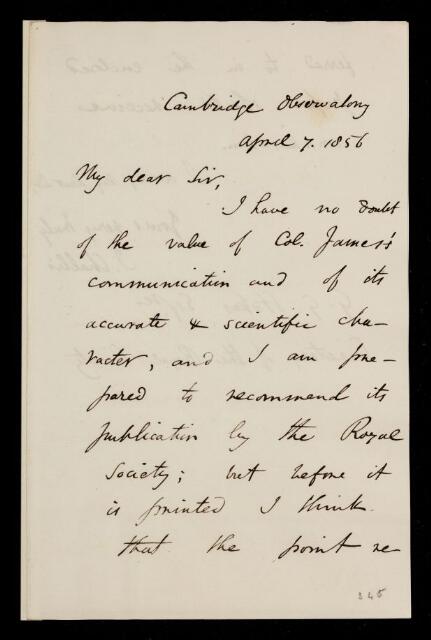 Cambridge Observatory
April 7. 1856
My dear Sir,
I have no doubt
of the value of Col. James's
communication and of its
accurate & scientific cha-
racter, and I am pre-
pared to recommend its
publication by the Royal
Society; but before it
is printed I think
that the point re-
345